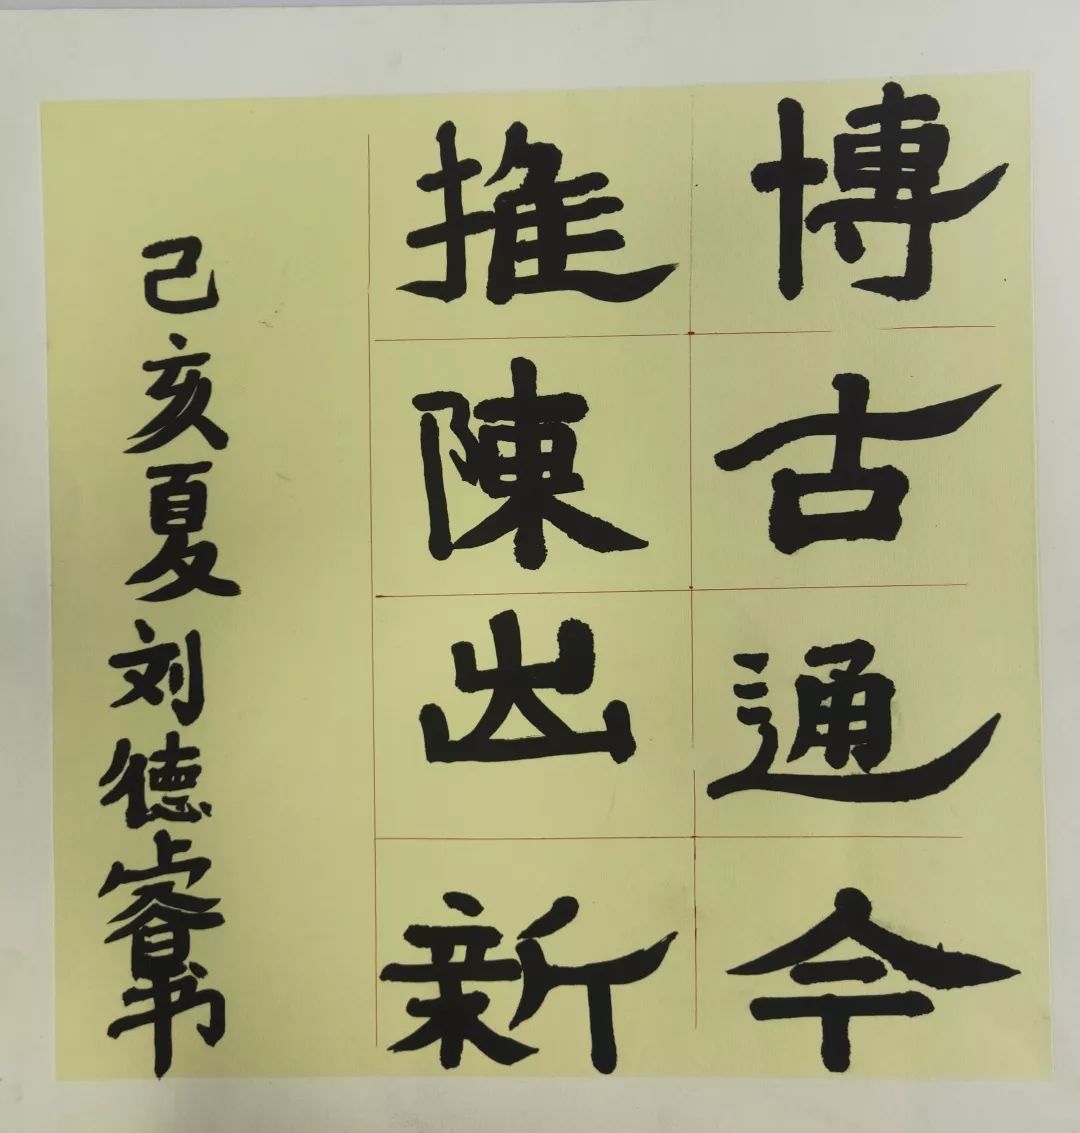 博古通今
推陳出新
己亥夏刘德睿书